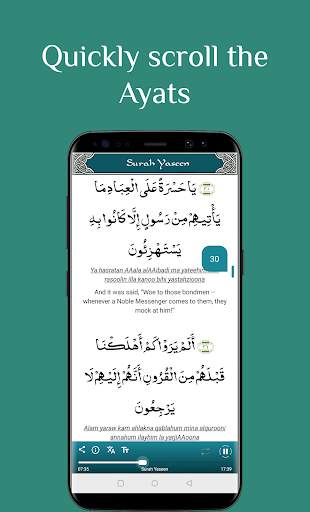 Quickly scroll the
Ayats
Surah Yaseen
يَا حَسْرَةً عَلَى الْعِبَادِ مَا
يَأْتِيهِمْ مِنْ رَسُولٍ إِلَّا كَانُوا بِهِ
يَسْتَهْزِئُونَ
30
Ya hasratan AAala alAAibadi ma yateehim
rasoolin illa kanoo bihi yastahzioona
And it was said, "Woe to those bondmen –
whenever a Noble Messenger comes to them, they
mock at him!"
أَلَمْ يَرَوْا كَمْ أَهْلَكْنَا
قَبْلَهُمْ مِنَ الْقُرُونِ أَنَّهُمْ إِلَيْهِمْ لَا
يَرْجِعُونَ
Alam yaraw kam ahlakna qablahum mina alqurooni
annahum ilayhim la yarjiAAoona
07:35 Surah Yaseen 17:39